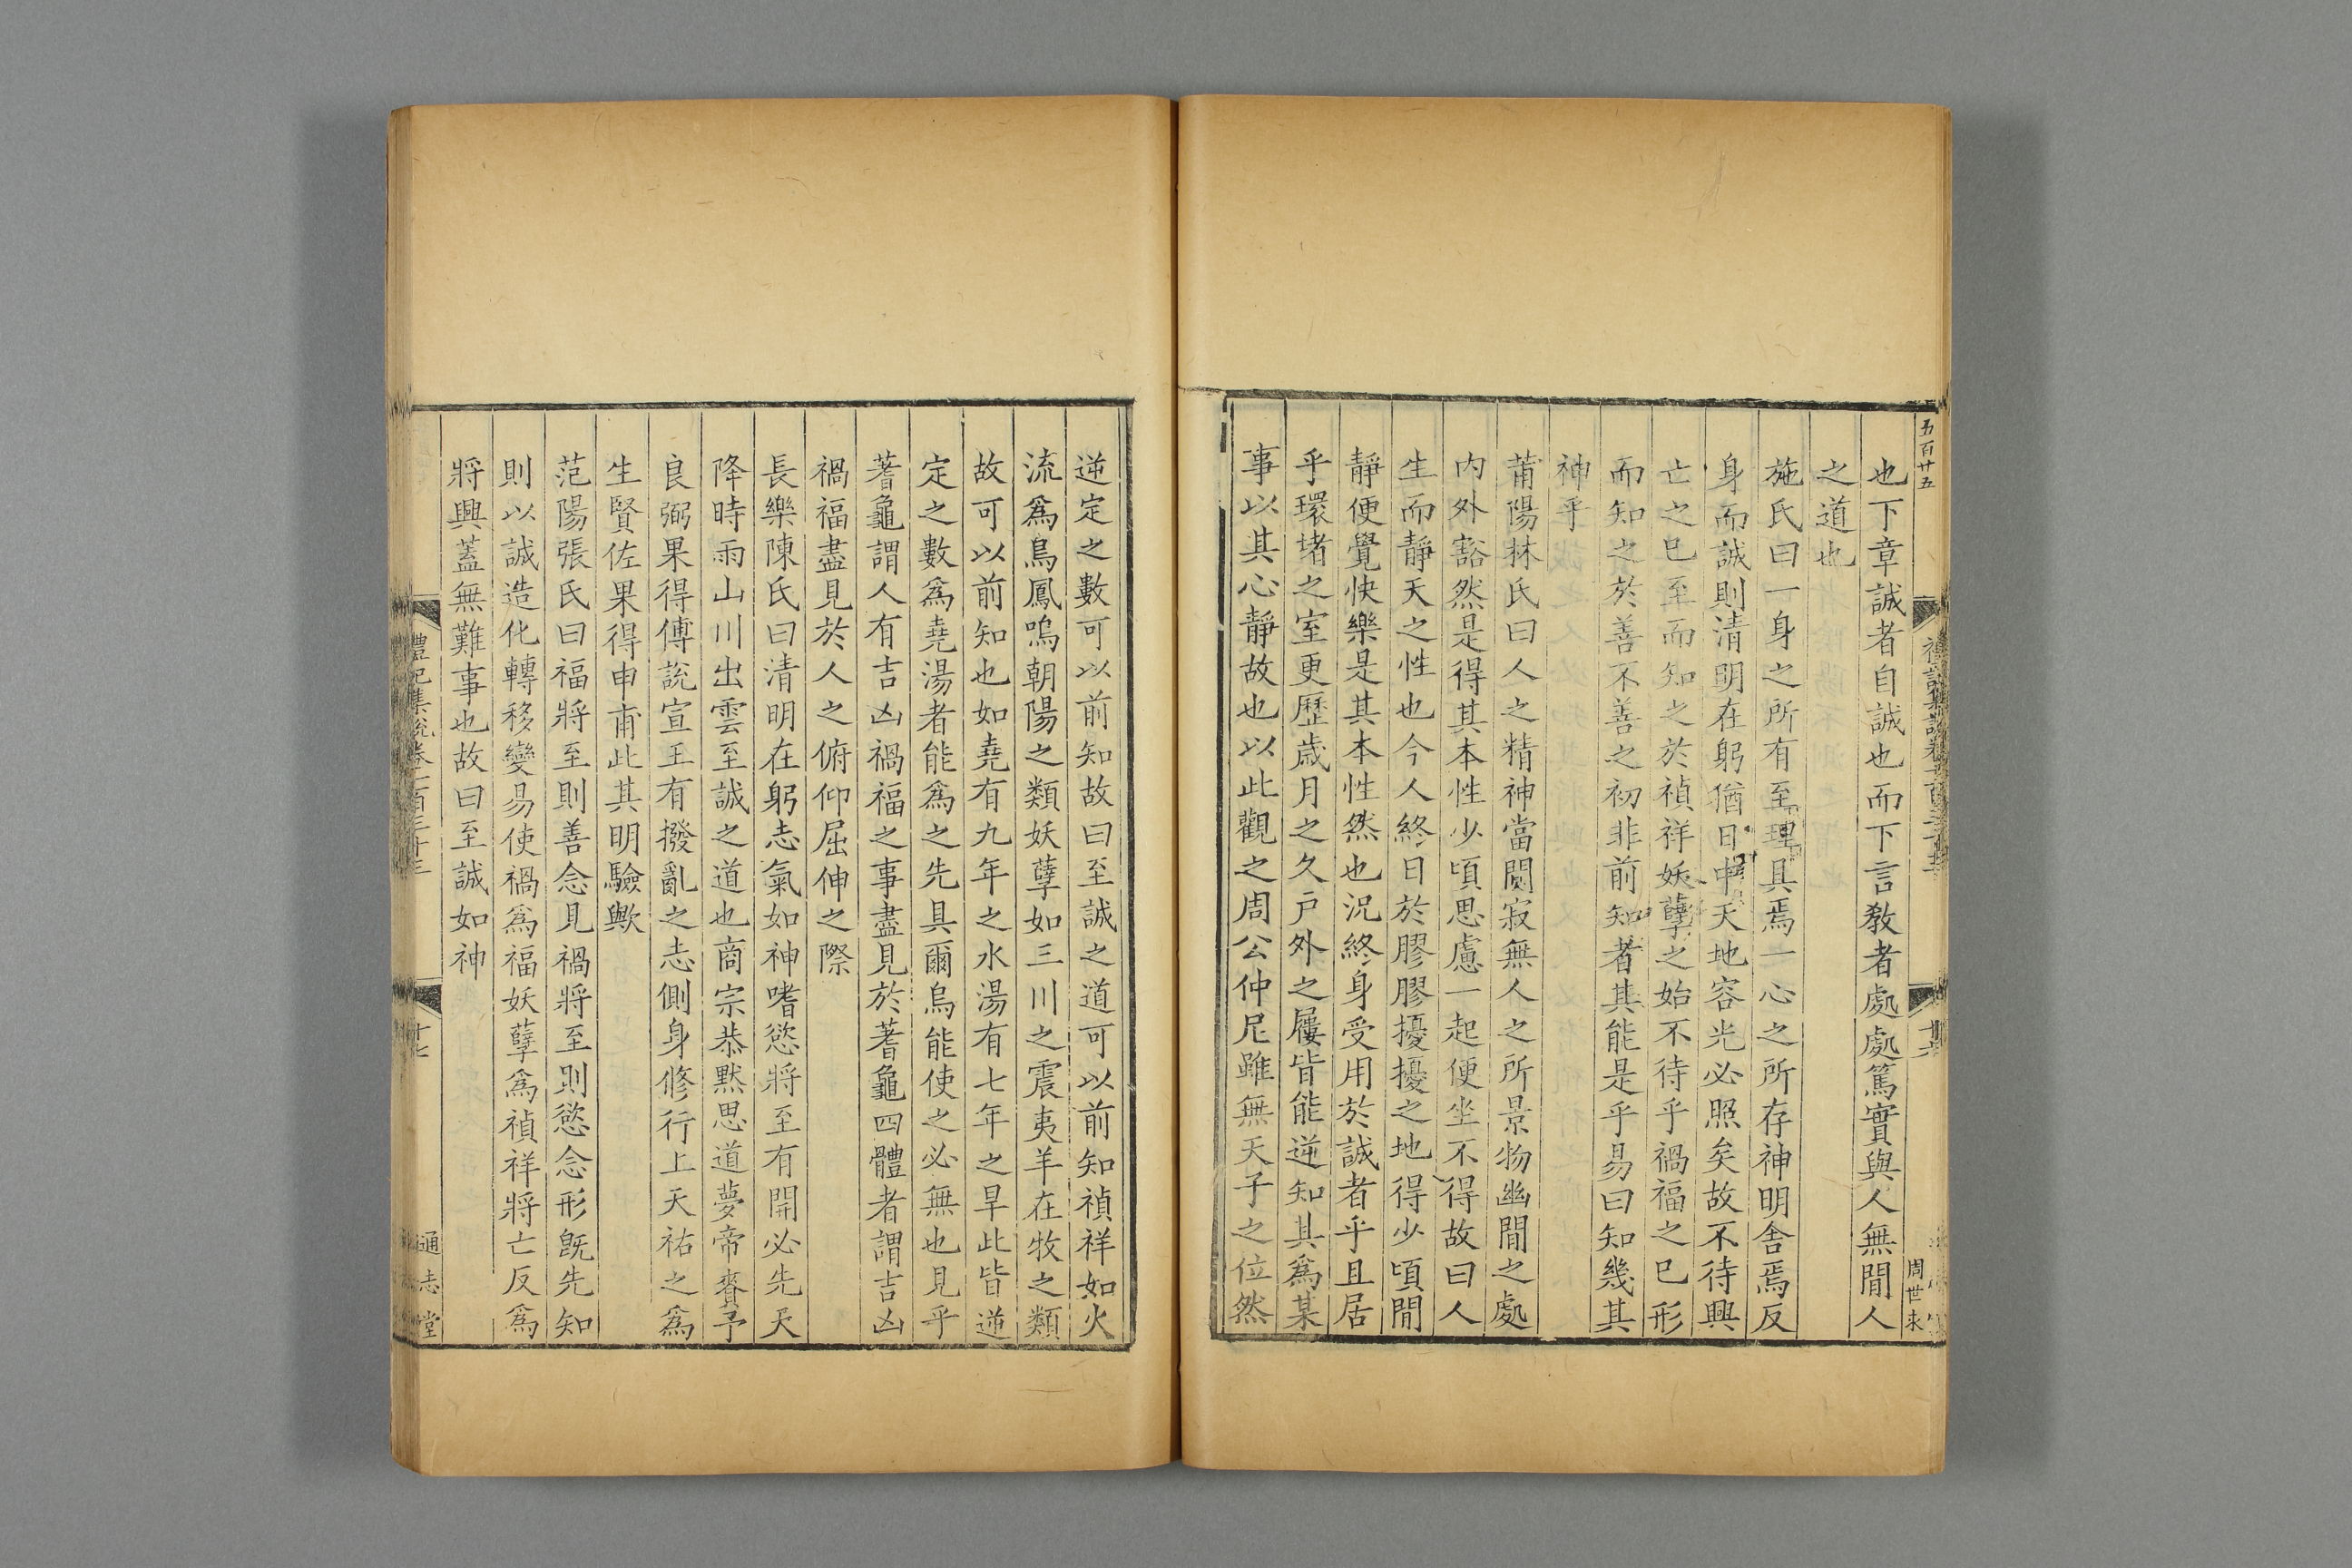 五百廿五
周世求
也下章誠者自誠也而下言敎者處處篤實與人無閒人
之道也
施氏曰一身之所有至理具焉一心之所存神明舍焉反
身而誠則清明在躬猶日中天地容光必照矣故不待興
亡之巳至而知之於禎祥妖孽之始不待乎禍福之巳形
而知之於善不善之初非前知者其能是乎易曰知幾其
神乎
莆陽林氏曰人之精神當闃寂無人之所景物幽閒之處
内外豁然是得其本性少頃思慮一起便坐不得故曰人
生而靜天之性也今人終日於膠膠擾擾之地得少頃閒
靜便覺快樂是其本性然也況終身受用於誠者乎且居
乎環堵之室更歷歲月之久戸外之屨皆能逆知其爲某
事以其心靜故也以此觀之周公仲尼雖無天子之位然
逆定之數可以前知故曰至誠之道可以前知禎祥如火
流爲烏鳳鳴朝陽之類妖孽如三川之震夷羊在牧之類
故可以前知也如堯有九年之水湯有七年之旱此皆逆
定之數爲堯湯者能爲之先具爾烏能使之必無也見乎
蓍龜謂人有吉凶禍福之事盡見於蓍龜四體者謂吉凶
禍福盡見於人之俯仰屈伸之際
長樂陳氏曰清明在躬志氣如神嗜慾將至有開必先天
降時雨山川出雲至誠之道也商宗恭黙思道夢帝賚予
良弼果得傅說宣王有撥亂之志側身修行上天祐之爲
生賢佐果得申甫此其明驗歟
范陽張氏曰福將至則善念見禍將至則慾念形旣先知
則以誠造化轉移變易使禍爲福妖孽爲禎祥將亡反爲
將興蓋無難事也故曰至誠如神
禮記集說卷一百三十三
十七
通志堂